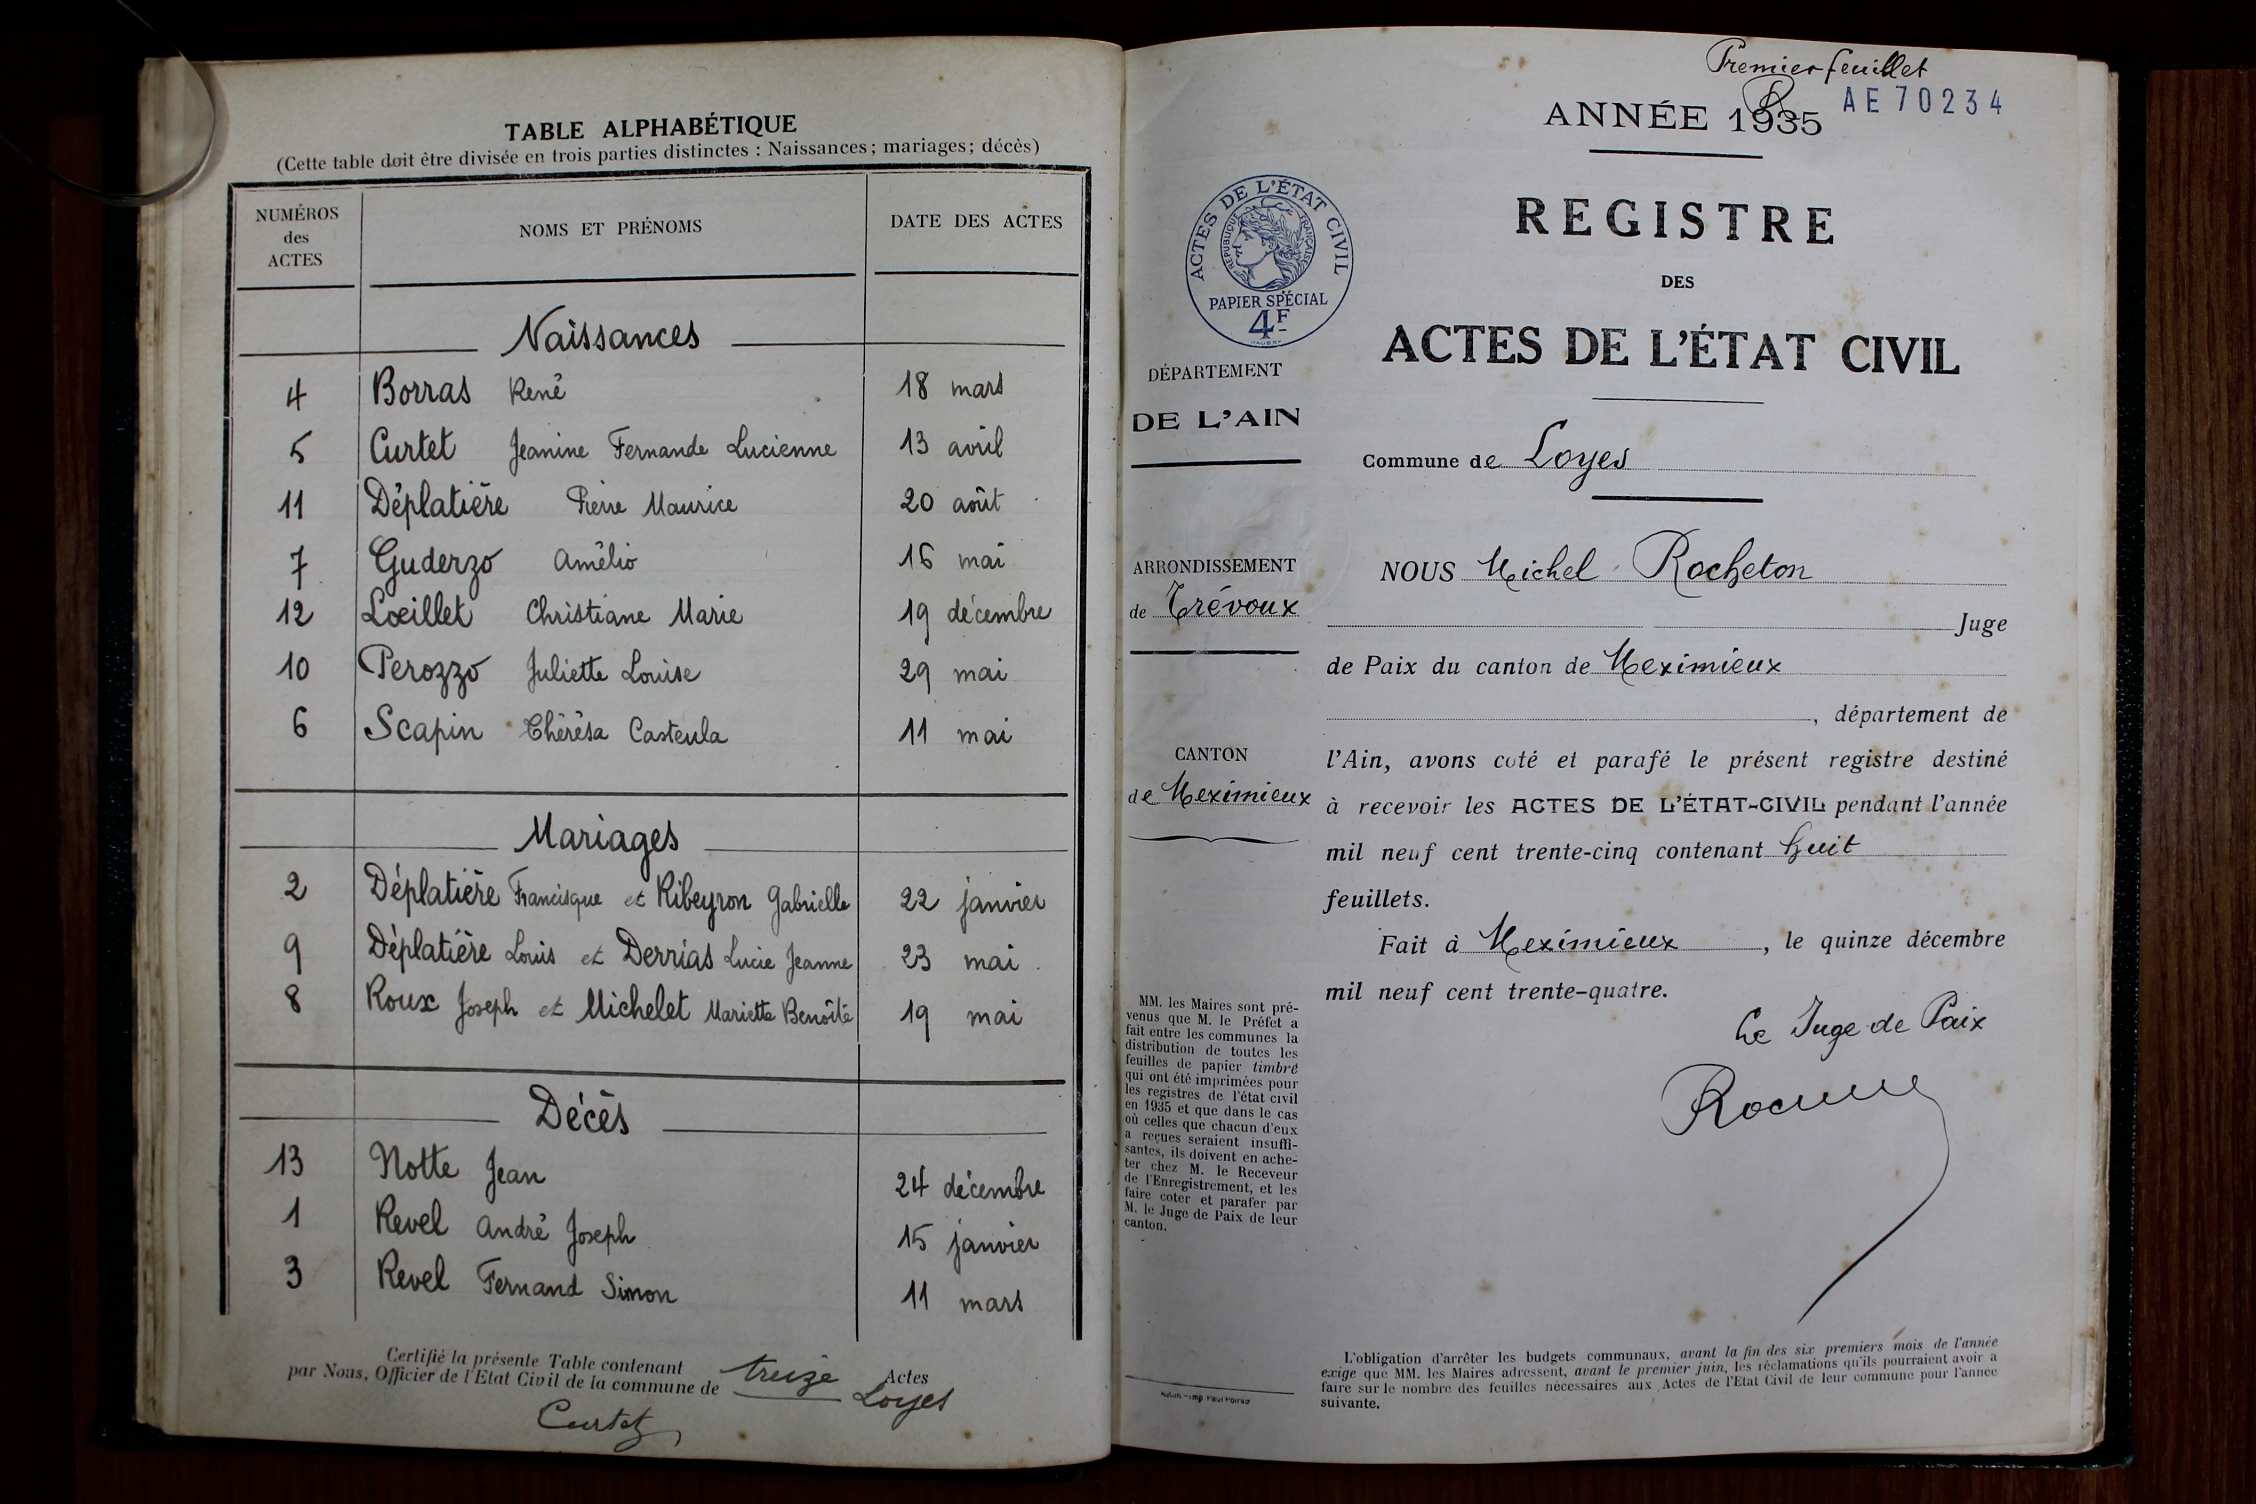 TABLE ALPHABÉTIQUE
(Cette table doit être divisée en trois parties distinctes : Naissances; mariages; décès)
NUMÉROS des ACTES NOMS ET PRÉNOMS DATE DES ACTES
Naissances
4 Borras René 18 mars
5 Curtet Jeanine Fernande Lucienne 13 avril
11 Déplatière Pierre Maurice 20 août
7 Guderzo Amélio 16 mai
12 Lœillet Christiane Marie 19 décembre
10 Perozzo Juliette Louise 29 mai
6 Scapin Thérésa Casteula 11 mai
Mariages
2 Déplatière Francisque et Ribeyron Gabrielle 22 janvier
9 Déplatière Louis et Derrias Lucie Jeanne 23 mai
8 Roux Joseph et Michelet Mariette Benoîte 19 mai
Décès
13 Notte Jean 24 décembre
1 Revel André Joseph 15 janvier
3 Revel Fernand Simon 11 mars
Certifié la présente Table contenant treize Actes
par Nous, Officier de l'Etat Civil de la commune de Loyes
Curtet
Premier feuillet
ANNÉE 1935
AE70234
ACTES DE L'ÉTAT CIVIL
RÉPUBLIQUE FRANÇAISE
PAPIER SPÉCIAL
4F
REGISTRE
DES
ACTES DE L'ÉTAT CIVIL
DÉPARTEMENT
DE L'AIN
ARRONDISSEMENT
de Trévoux
CANTON
de Meximieux
MM. les Maires sont pré-
venus que M. le Préfet a
fait entre les communes la
distribution de toutes les
feuilles de papier timbré
qui ont été imprimées pour
les registres de l'état civil
en 1935 et que dans le cas
où celles que chacun d'eux
a reçues seraient insuffi-
santes, ils doivent en ache-
ter chez M. le Receveur
de l'Enregistrement, et les
faire coter et parafer par
M. le Juge de Paix de leur
canton.
Commune de Loyes
NOUS Michel Rocheton
Juge
de Paix du canton de Meximieux
, département de
l'Ain, avons coté et parafé le présent registre destiné
à recevoir les ACTES DE L'ÉTAT-CIVIL pendant l'année
mil neuf cent trente-cinq contenant huit
feuillets.
Fait à Meximieux, le quinze décembre
mil neuf cent trente-quatre.
Le Juge de Paix
L'obligation d'arrêter les budgets communaux, avant la fin des six premiers mois de l'année
exige que MM. les Maires adressent, avant le premier juin, les réclamations qu'ils pourraient avoir à
faire sur le nombre des feuilles nécessaires aux Actes de l'Etat Civil de leur commune pour l'année
suivante.